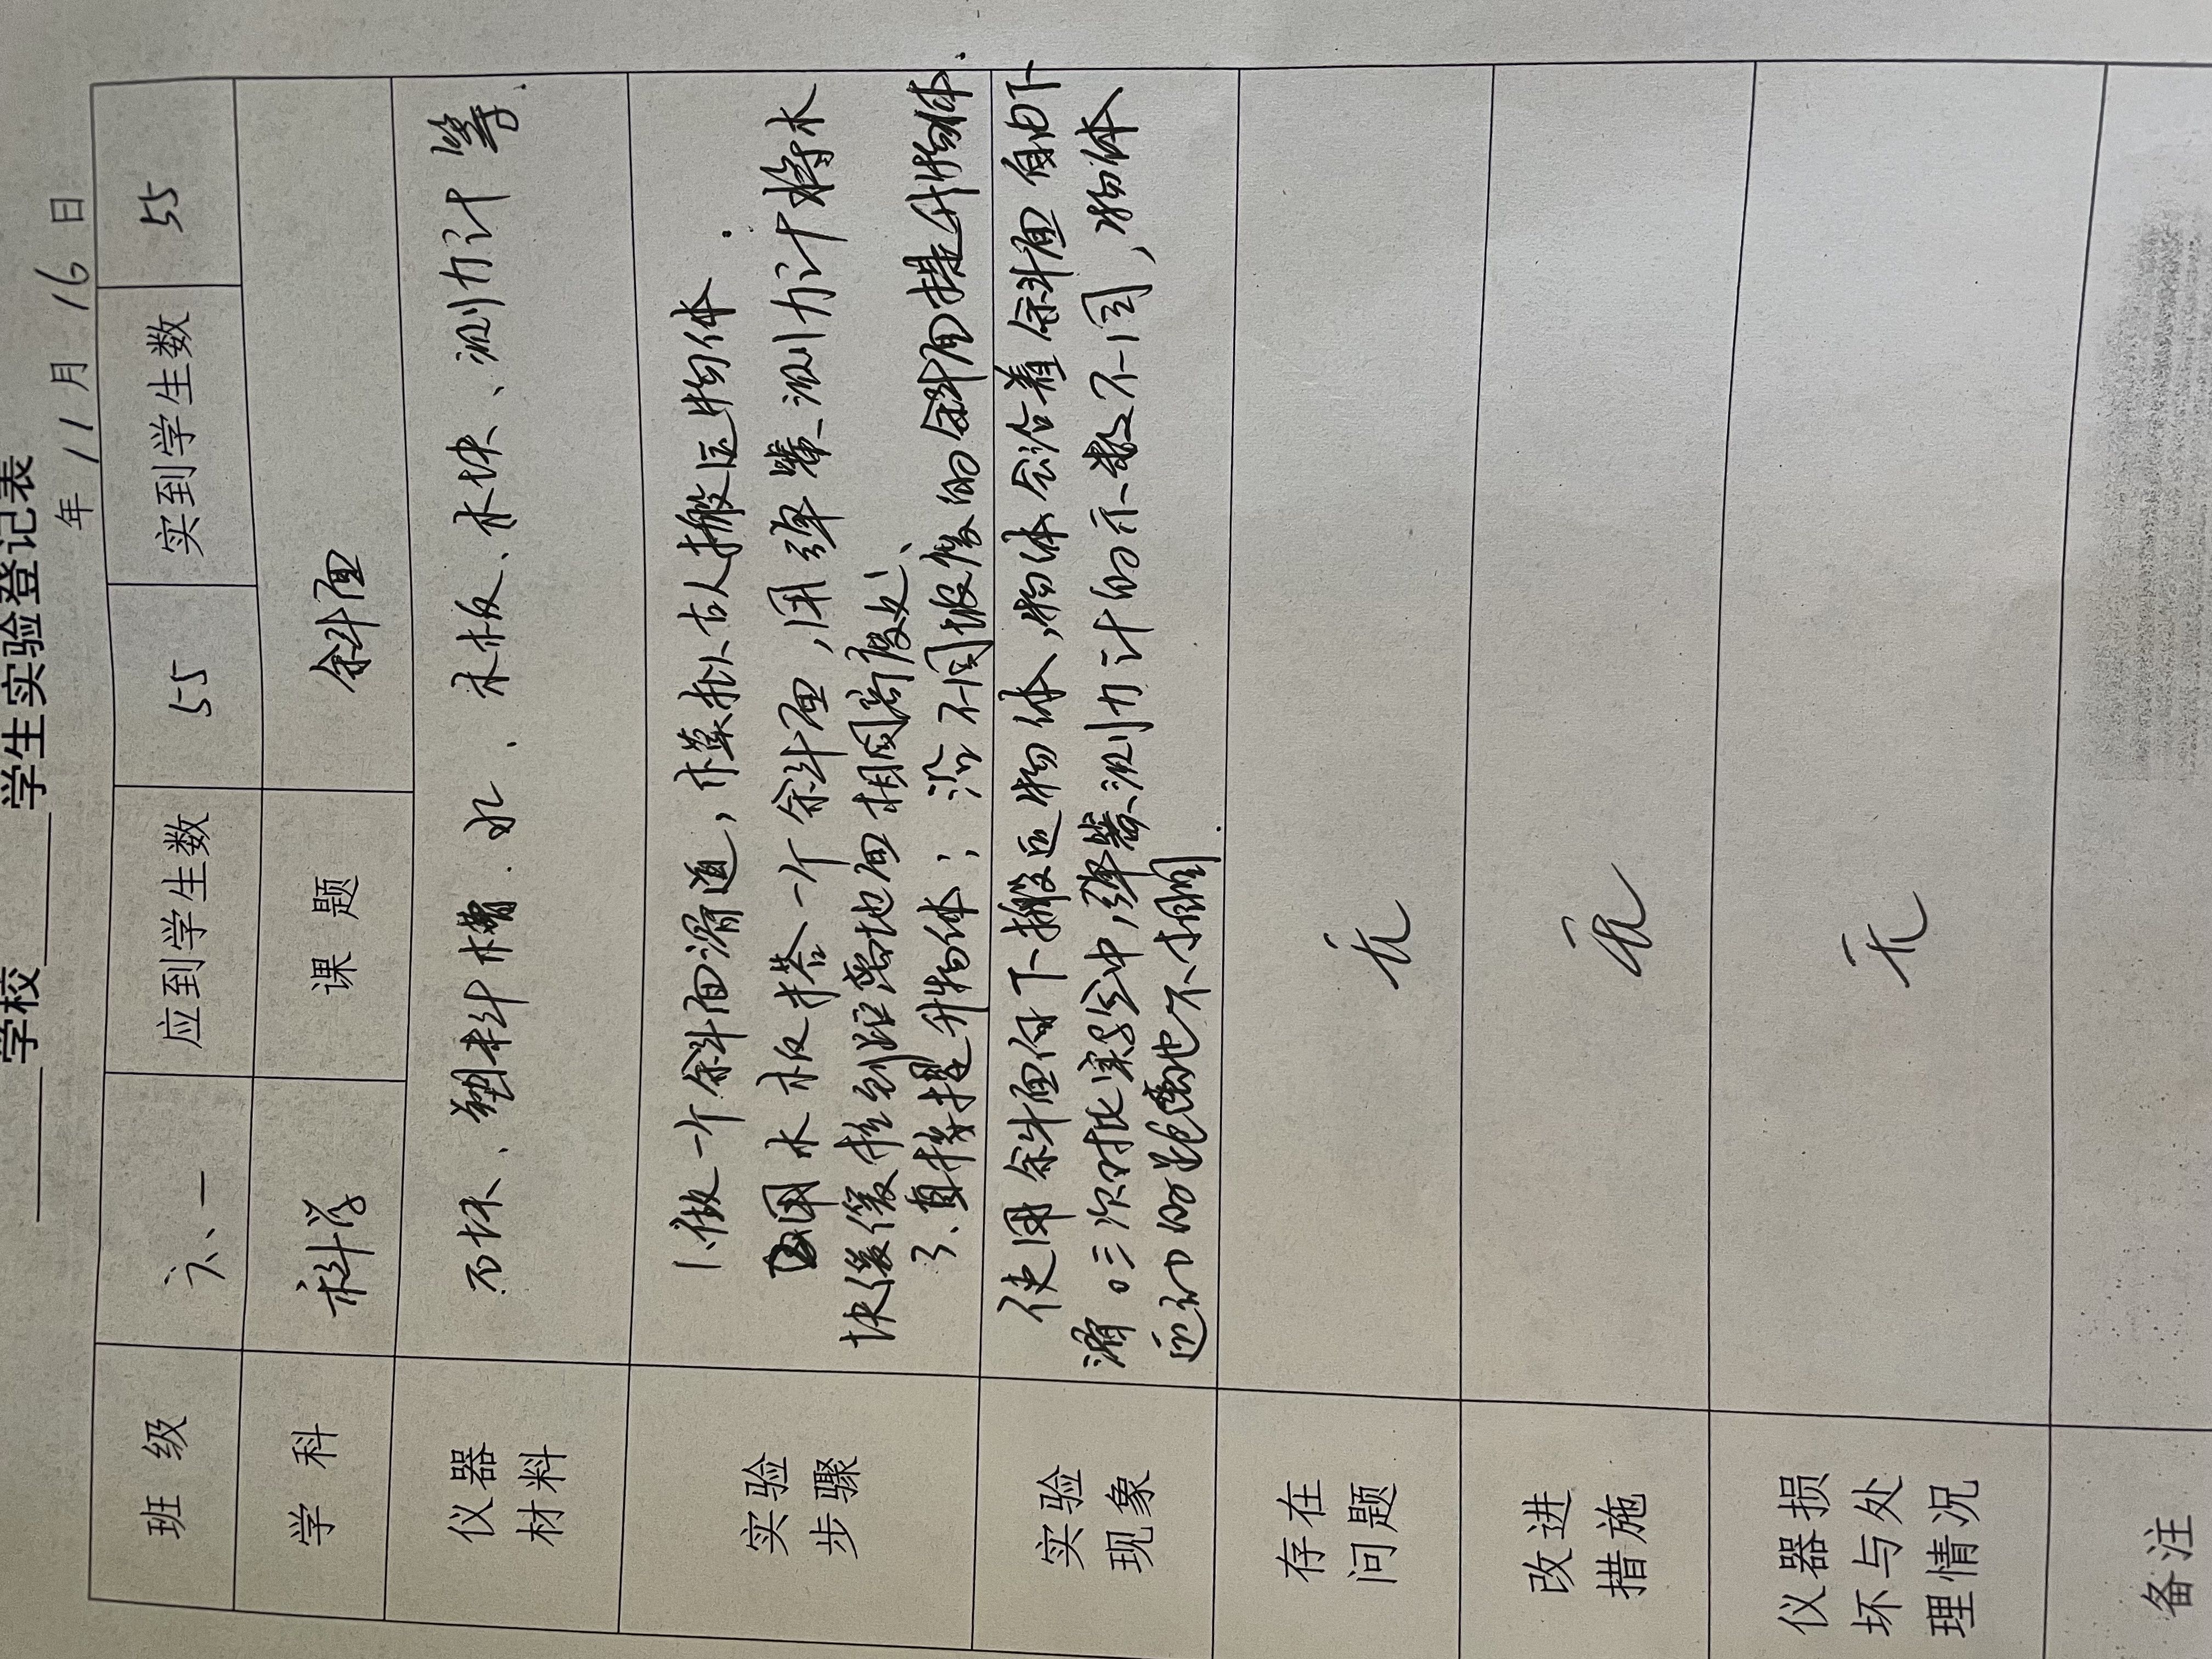 学校 学生实验登记表
年 11 月 16 日
班 级 六、一 应到学生数 55 实到学生数 55
学 科 科学 课 题 斜面
仪器
材料
石块、塑料槽、水、木板、木块、测力计等.
实验
步骤
1.做一个斜面滑道,模拟古人搬运物体.
2用木板搭一个斜面,用弹簧测力计将木
块缓缓拉到距离地面相同高度处、
3、直接提升物体;沿不同坡度的斜面提升物体.
实验
现象
使用斜面付下搬运物体,物体会沿着斜面自由下
滑。三次对比实验中,弹簧测力计的示数不同,物体
运动的距离也不相同.
存在
问题
无
改进
措施
无
仪器损
坏与处
理情况
无
备注